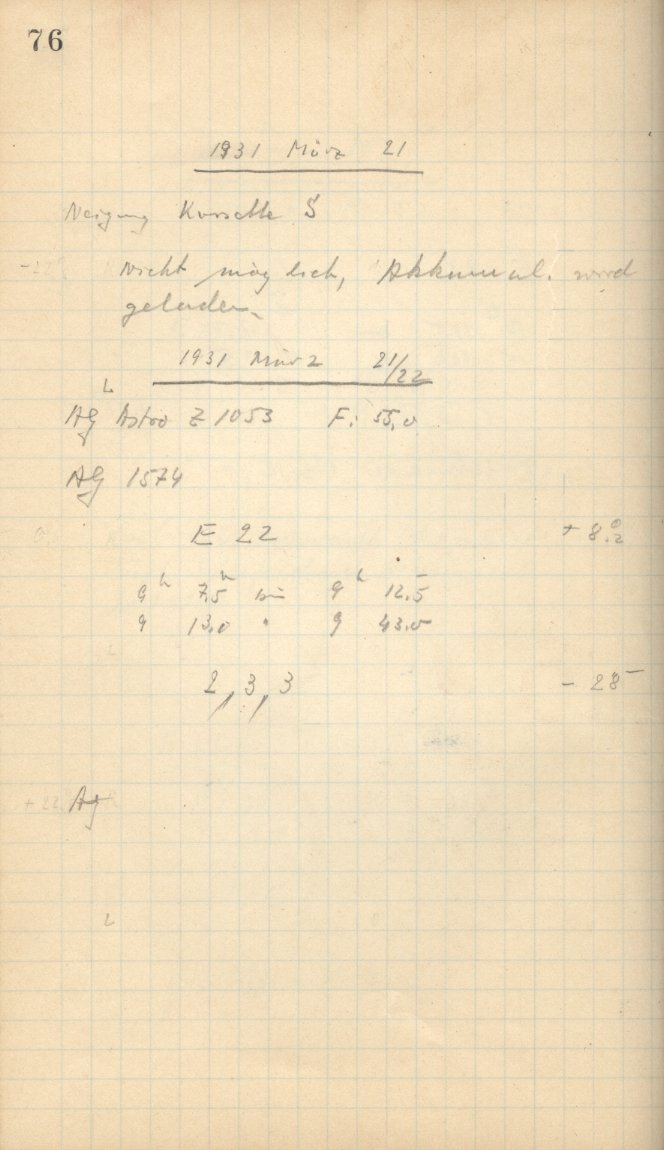 76
1931 März 21
Neigung Kassette S
nicht möglich, Akkumul. wird
geladen.
1931 März 21/22
L
AG Astro Z 1053 F: 55,0
AG 1574
E 22 + 8.2
9h 7.5 bis 9h 12.5
9 13.0 " 9 43.0
2, 3, 3 - 28
AG
L